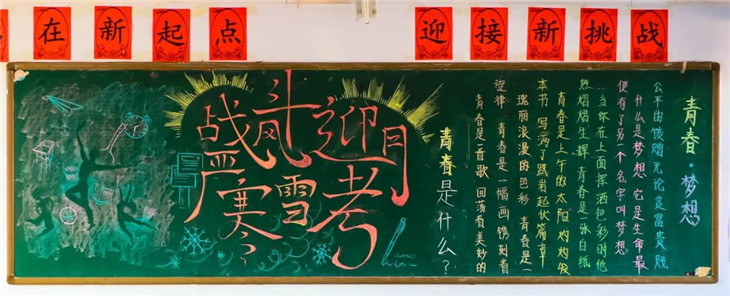 在新起点
迎接新挑战
战严寒
斗风雪
迎月考
青春是什么？
青春是一首歌 回荡着美妙的
旋律 青春是一幅画 镌刻着
瑰丽浪漫的色彩 青春是一
本书 写满了跌宕起伏篇章
青春是上午的太阳 灼灼发
热熠熠生辉 青春是一张白纸
当你在上面挥洒色彩时他
便有了另一个名字叫梦想
什么是梦想，它是生命最
公平的馈赠无论是富贵贱
青春·梦想